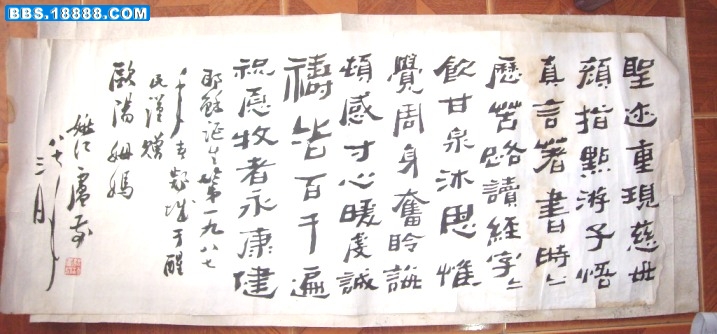 BBS.18888.COM
聖迹重現慈母
顏指點游子悟
真言著書時々
歷苦路讀經字々
飲甘泉沐思惟
覺周身奮聆誨
頓感寸心暖虔誠
禱告百千遍
祝愿牧者永康健
耶穌诞生第一九八七
年于醒
民謹贈
歐陽姆媽
八七年
三月